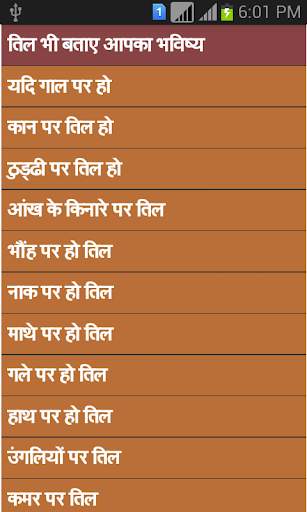 1 6:01 PM
तिल भी बताए आपका भविष्य
यदि गाल पर हो
कान पर तिल हो
ठुड्ढी पर तिल हो
आंख के किनारे पर तिल
भौंह पर हो तिल
नाक पर हो तिल
माथे पर हो तिल
गले पर हो तिल
हाथ पर हो तिल
उंगलियों पर तिल
कमर पर तिल